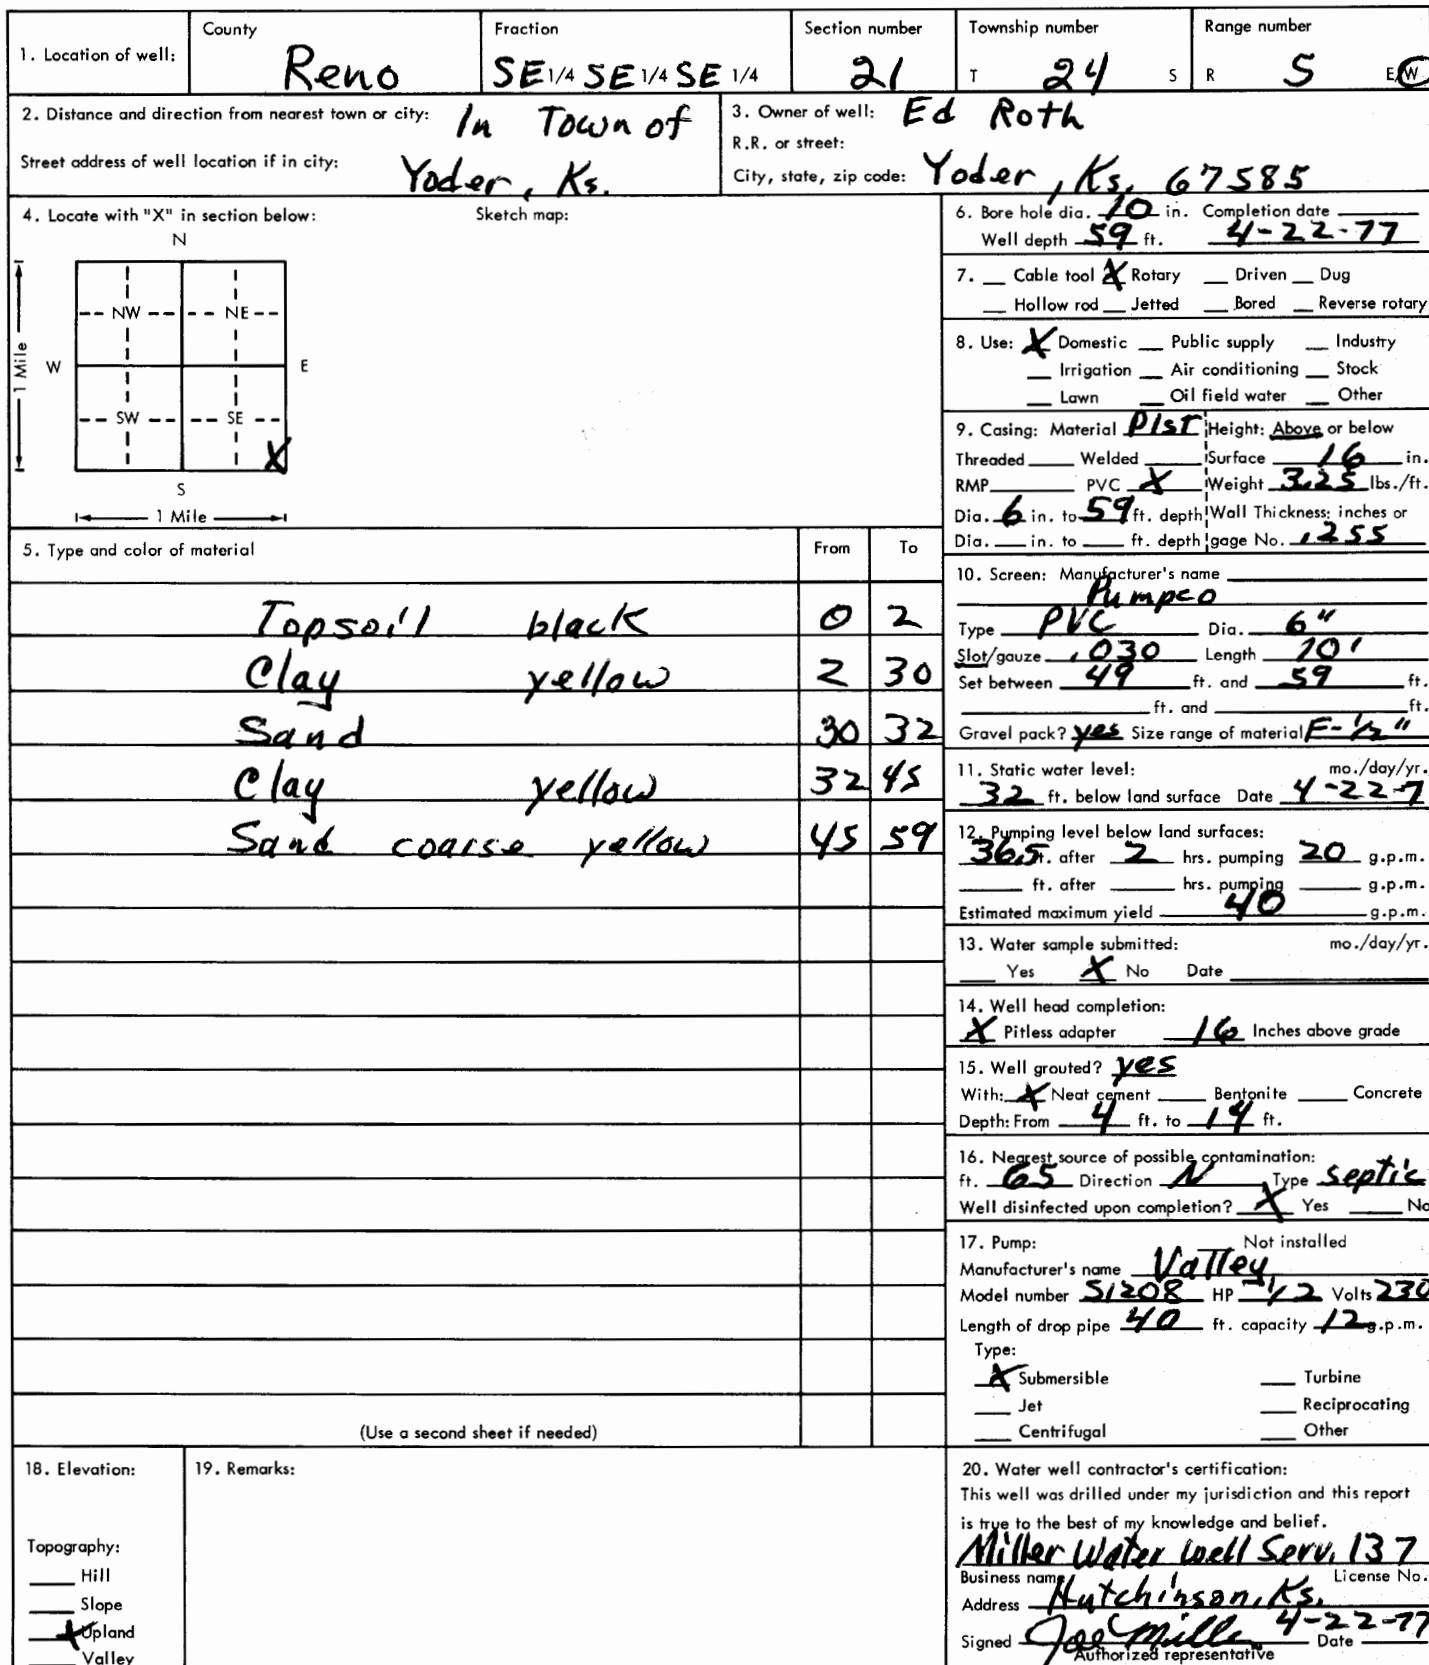 1. Location of well: County Reno Fraction SE 1/4 SE 1/4 SE 1/4 Section number 21 Township number T 24 S Range number R 5 E/W
2. Distance and direction from nearest town or city: In Town of
Street address of well location if in city: Yoder, Ks.
3. Owner of well: Ed Roth
R.R. or street:
City, state, zip code: Yoder, Ks. 67585
4. Locate with "X" in section below: Sketch map:
N
NW NE
W E
1 Mile
SW SE
X
S
1 Mile
5. Type and color of material From To
Topsoil black 0 2
Clay yellow 2 30
Sand 30 32
Clay yellow 32 45
Sand coarse yellow 45 59
(Use a second sheet if needed)
6. Bore hole dia. 10 in. Completion date
Well depth 59 ft. 4-22-77
7. __ Cable tool X Rotary __ Driven __ Dug
__ Hollow rod __ Jetted __ Bored __ Reverse rotary
8. Use: X Domestic __ Public supply __ Industry
__ Irrigation __ Air conditioning __ Stock
__ Lawn __ Oil field water __ Other
9. Casing: Material Plst Height: Above or below
Threaded __ Welded __ Surface 16 in.
RMP __ PVC X Weight 3.25 lbs./ft.
Dia. 6 in. to 59 ft. depth Wall Thickness: inches or
Dia. __ in. to __ ft. depth gage No. .255
10. Screen: Manufacturer's name
Pumpco
Type PVC Dia. 6"
Slot/gauze .030 Length 10'
Set between 49 ft. and 59 ft.
__ ft. and __ ft.
Gravel pack? yes Size range of material F-1/2"
11. Static water level: mo./day/yr.
32 ft. below land surface Date 4-22-7
12. Pumping level below land surfaces:
36.5 ft. after 2 hrs. pumping 20 g.p.m.
__ ft. after __ hrs. pumping __ g.p.m.
Estimated maximum yield 40 g.p.m.
13. Water sample submitted: mo./day/yr.
__ Yes X No Date __
14. Well head completion:
X Pitless adapter 16 Inches above grade
15. Well grouted? yes
With: X Neat cement __ Bentonite __ Concrete
Depth: From 4 ft. to 14 ft.
16. Nearest source of possible contamination:
ft. 65 Direction N Type septic
Well disinfected upon completion? X Yes __ No
17. Pump: Not installed
Manufacturer's name Valley
Model number S1208 HP 1/2 Volts 230
Length of drop pipe 40 ft. capacity 12 g.p.m.
Type:
X Submersible __ Turbine
__ Jet __ Reciprocating
__ Centrifugal __ Other
18. Elevation:
Topography:
__ Hill
__ Slope
X Upland
__ Valley
19. Remarks:
20. Water well contractor's certification:
This well was drilled under my jurisdiction and this report
is true to the best of my knowledge and belief.
Miller Water Well Serv. 137
Business name License No.
Address Hutchinson, Ks.
Signed Joe Mille 4-22-77 Date
Authorized representative